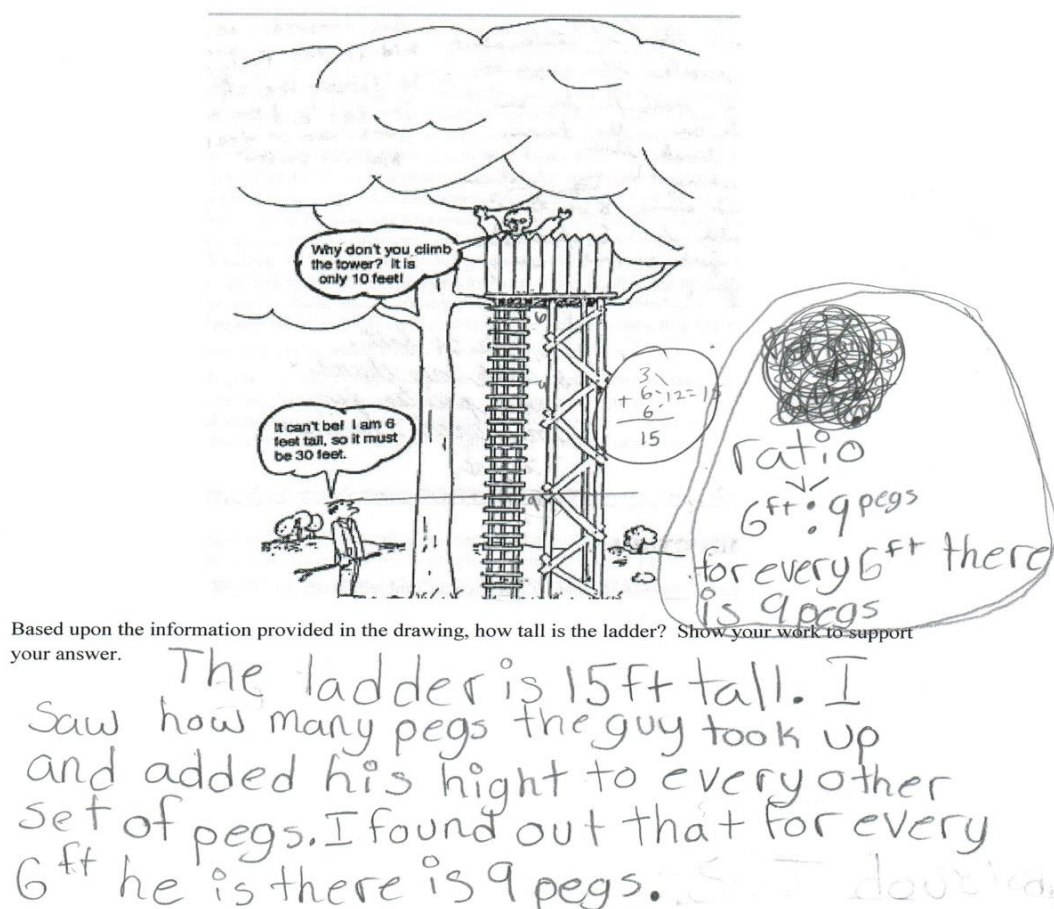 Why don't you climb
the tower? It is
only 10 feet!
It can't be! I am 6
feet tall, so it must
be 30 feet.
6
9
3
+ 6 12 = 15
6
15
ratio
6 ft : 9 pegs
for every 6 ft there
is 9 pegs
Based upon the information provided in the drawing, how tall is the ladder? Show your work to support
your answer.
The ladder is 15ft tall. I
Saw how many pegs the guy took up
and added his hight to every other
set of pegs. I found out that for every
6 ft he is there is 9 pegs.